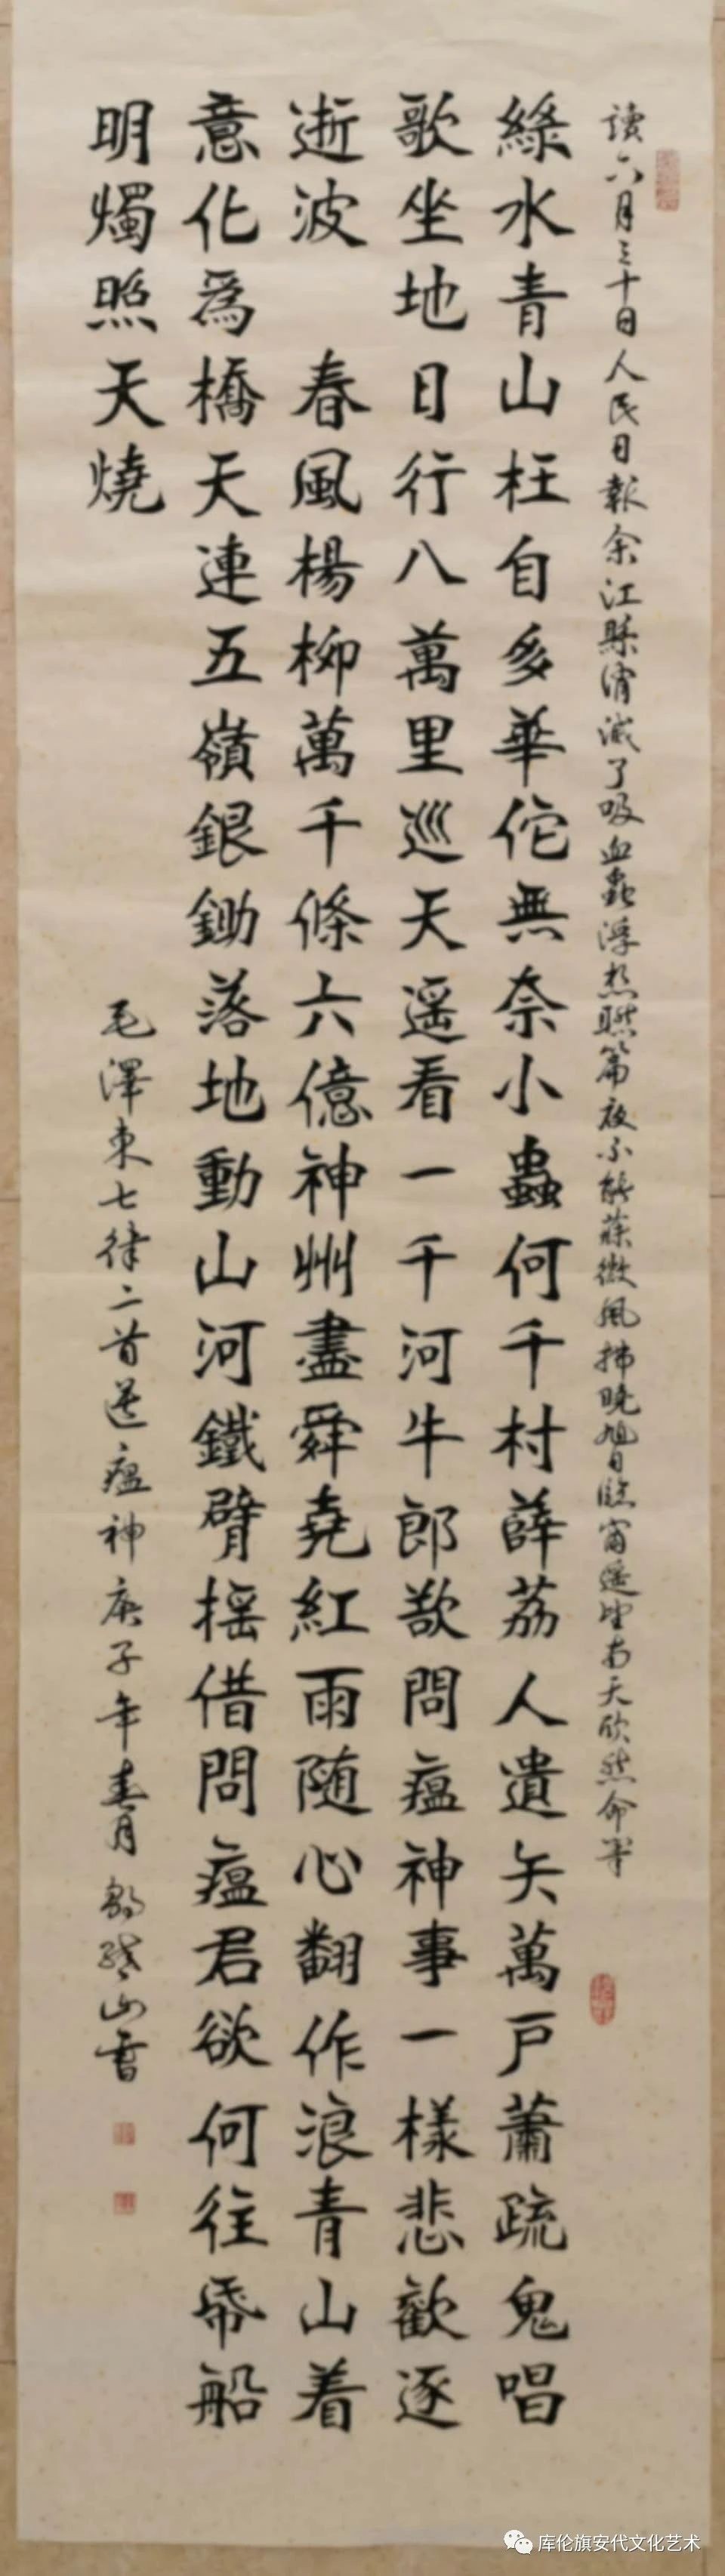 讀六月三十日人民日報余江縣消滅了吸血蟲浮想聯篇夜不能寐微風拂曉旭日臨窗遥望南天欣然命筆
綠水青山枉自多華佗無奈小蟲何千村薜荔人遺矢萬戶蕭疏鬼唱
歌坐地日行八萬里巡天遥看一千河牛郎欲問瘟神事一樣悲歡逐
逝波 春風楊柳萬千條六億神州盡舜堯紅雨随心翻作浪青山着
意化為橋天連五嶺銀鋤落地動山河鐵臂摇借問瘟君欲何往帋船
明燭照天燒
毛澤東七律二首送瘟神庚子年春月 山書
库伦旗安代文化艺术